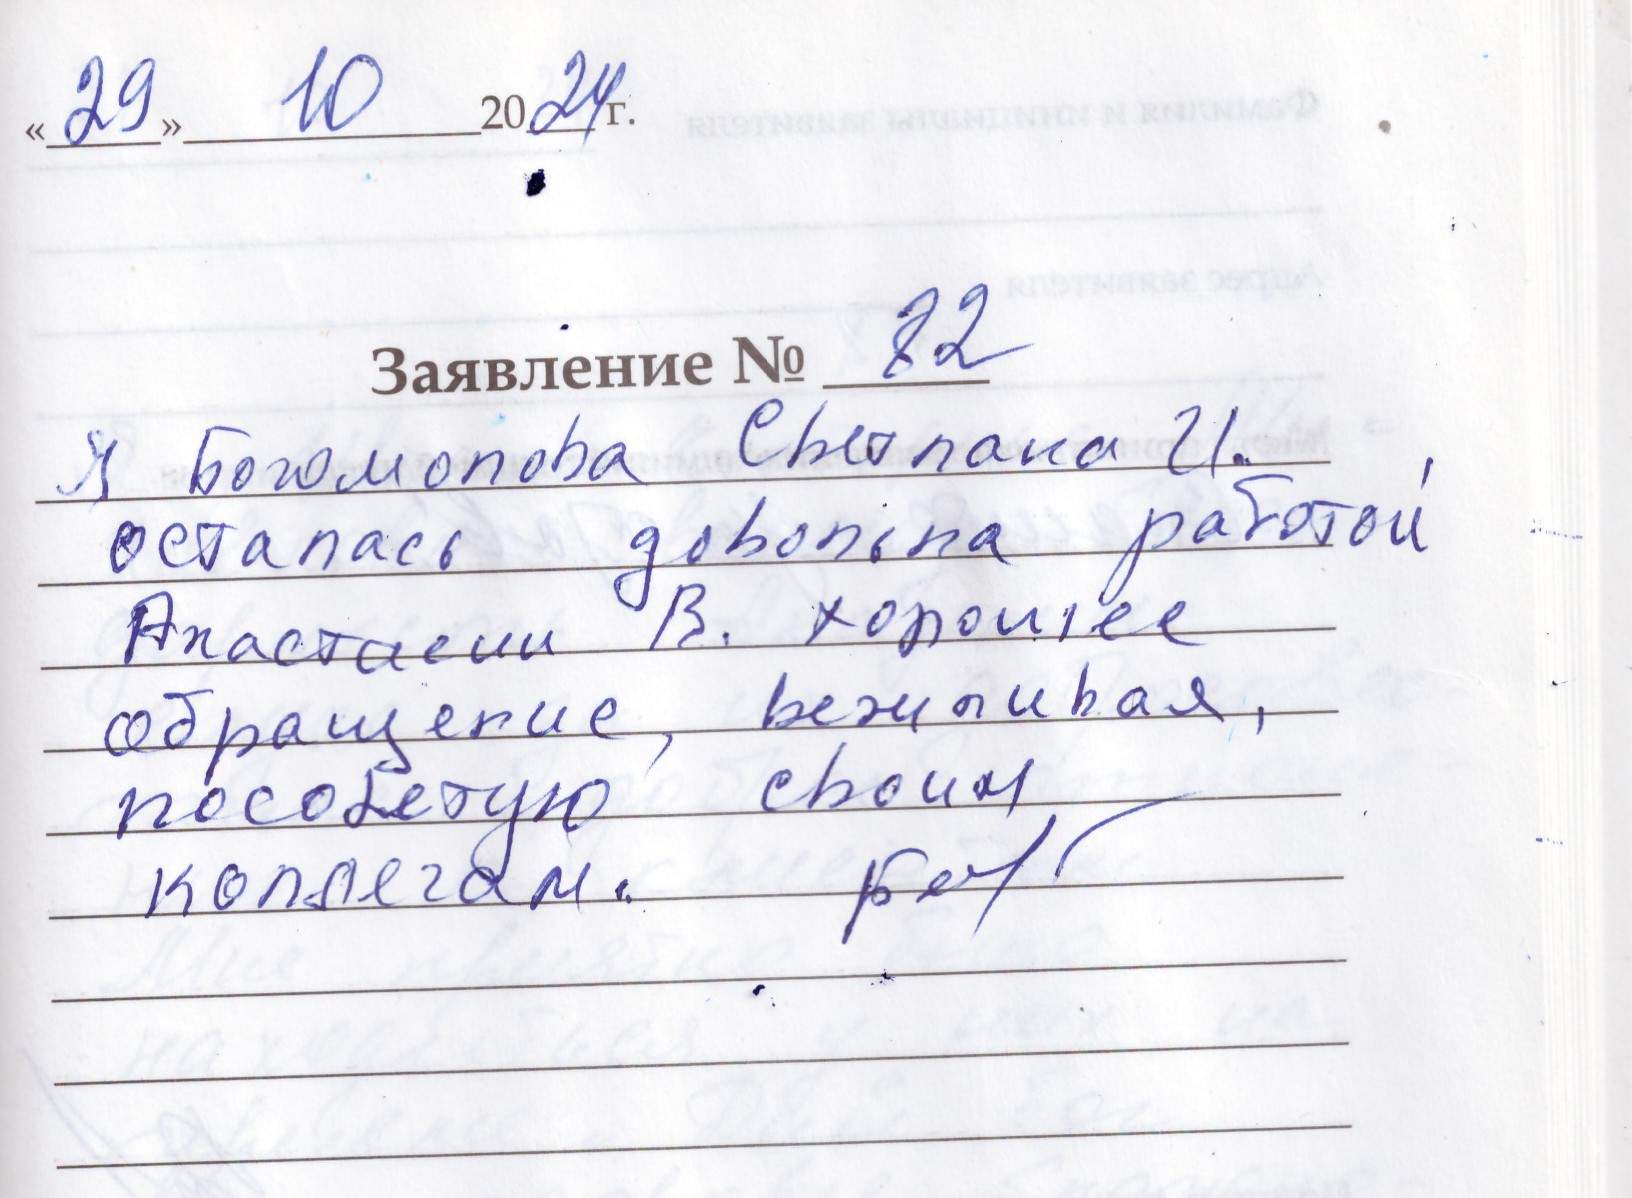 «29» 10 2024 г.
Заявление № 82
Я Богомолова Светлана И.
осталась довольна работой
Анастасии В. хорошее
обращение, вежливая,
посоветую своим
коллегам.